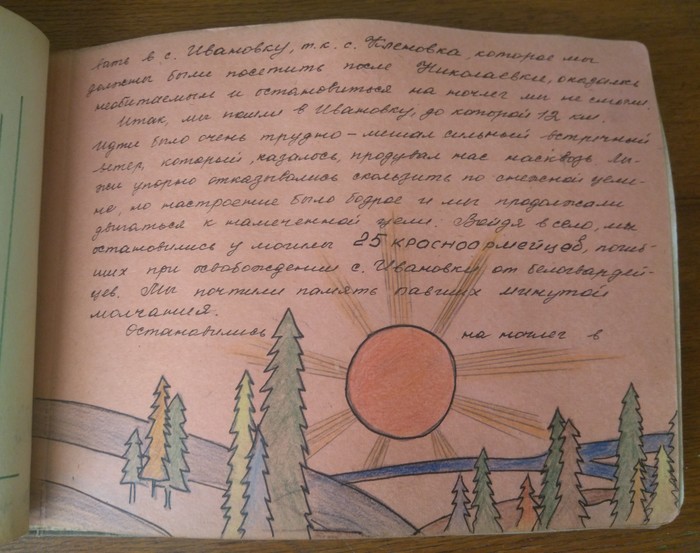 вать в с. Ивановку, т.к. с. Кленовка, которое мы
должны были посетить после Николаевки, оказалось
необитаемым и остановиться на ночлег мы не смогли.
Итак, мы пошли в Ивановку, до которой 12 км.
Идти было очень трудно – мешал сильный встречный
ветер, который, казалось, продувал нас насквозь. Лы-
жи упорно отказывались скользить по снежной цели-
не, но настроение было бодрое и мы продолжали
двигаться к намеченной цели. Войдя в село, мы
остановились у могилы 25 красноармейцев, погиб-
ших при освобождении с. Ивановки от белогвардей-
цев. Мы почтили память павших минутой
молчания.
Остановились на ночлег в